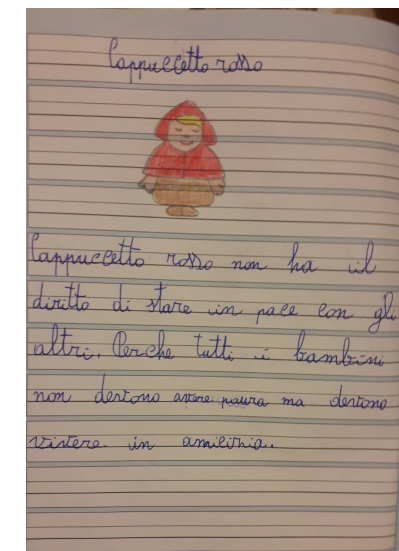 Cappuccetto rosso
Cappuccetto rosso non ha il
diritto di stare in pace con gli
altri. Perche tutti i bambini
non devono avere paura ma devono
vivere in amicinia.